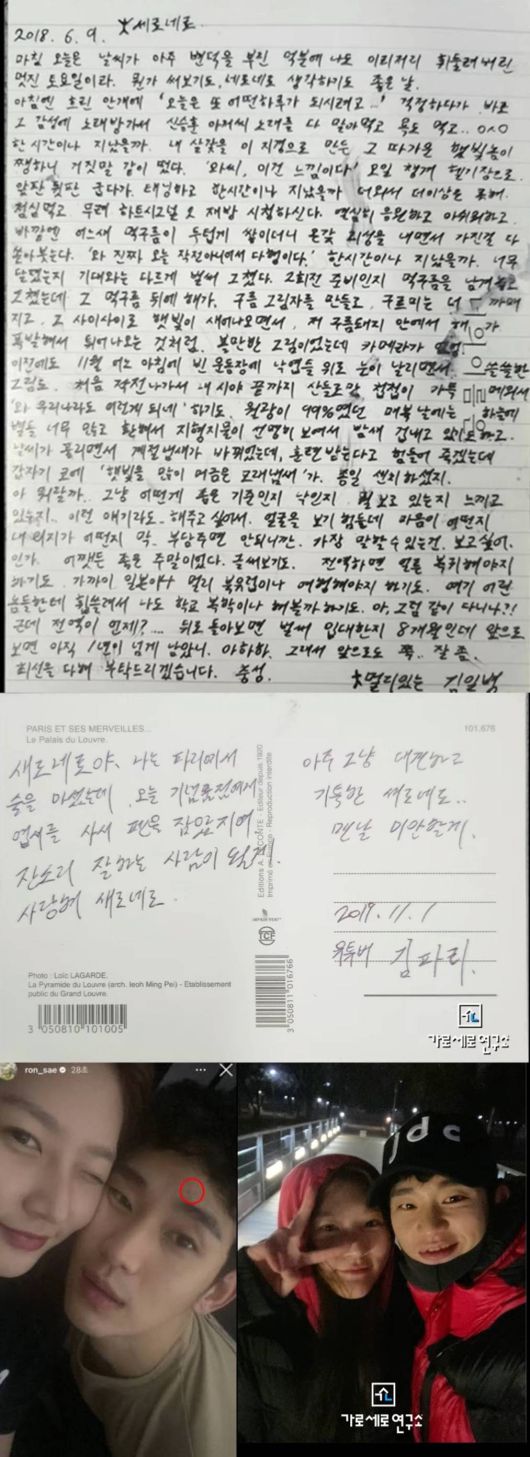 2018. 6. 9. ★세로네로.
마침 오늘은 날씨가 아주 변덕을 부린 덕분에 나도 이리저리 휘둘려버린
멋진 토요일이라. 뭔가 써보기도, 세로네로 생각하기도 좋은 날.
아침엔 흐린 안개에 '오늘은 또 어떤하루가 되시려고...' 걱정하다가 바로
그 감성에 노래방가서 신승훈 아저씨 노래를 다 말아먹고 욕도 먹고.. ㅇㅅㅇ
한 시간이나 지났을까. 내 살갗을 이 지경으로 만든 그 따가운 햇빛놈이
쨍하니 거짓말 같이 떴다. '와씨, 이건 느낌이다' 오일 챙겨 헬기장으로.
앞판 뒷판 굽다가. 태닝하고 한시간이나 지났을까 더워서 더이상은 못해.
점심먹고 무려 하트시그널 2 재방 시청하신다. 열심히 응원하고 아쉬워하고.
바깥엔 어느새 먹구름이 두텁게 쌓이더니 온갖 괴성을 내면서 가진걸 다
쏟아붓는다. '와 진짜 오늘 작전아니여서 다행이다.' 한시간이나 지났을까. 너무
달렸는지 기대와는 다르게 벌써 그쳤다. 2회전 준비인지 먹구름을 남겨놓고
그쳤는데 그 먹구름 뒤에 해가, 구름 그림자를 만들고, 구르미는 더 까매
지고. 그 사이사이로 햇빛이 새어나오면서, 저 구름돼지 안에서 해가
폭발해서 튀어나오는 것처럼. 볼만한 그림이었는데 카메라가 없어
이전에도 11월 어느 아침에 빈 운동장에 낙엽들 위로 눈이 날리면서 쓸쓸한
그림도. 처음 작전나가서 내 시야 끝까지 산들로만 첩첩이 가득 메워서
'와 우리나라도 이렇게 되네' 하기도. 월광이 99%였던 매복날에는 하늘에
별들 너무 많고 환해서 지형지물이 선명히 보여서 밤새 겁내고 있기도 하고.
날씨가 풀리면서 계절냄새가 바뀌었는데, 훈련받는다고 힘들어 죽겠는데
갑자기 코에 '햇빛을 많이 머금은 모래냄새'가. 종일 센치하셨지.
아 뭐랄까.. 그냥 어떻게 좋은 기준인지 낙인지 뭘 보고 있는지 느끼고
있는지.. 이런 얘기라도.. 해주고 싶어서. 얼굴을 보기 힘든데 마음이 어떤지
내 의지가 어떤지 막.. 부담주면 안되니깐. 가장 말할수 있는건, 보고싶어.
인가. 어쨌든 좋은 주말이었다. 글써보기도. 전역하면 얼른 복귀해야지
하기도. 가까이 일본이나 멀리 북유럽이나 여행해야지 하기도. 여기 어린
놈들한테 휩쓸려서 나도 학교 복학이나 해볼까 하기도. 아, 그럼 같이 다니나?!
근데 전역이 언제?.... 뒤로 돌아보면 벌써 입대한지 8개월인데 앞으로
보면 아직 1년이 넘게 남았니. 아하하. 그래서 앞으로도 쭉.. 잘 좀.
최선을 다해 부탁드리겠습니다. 충성.
★멀리있는 김일병
PARIS ET SES MERVEILLES...
Le Palais du Louvre.
101,676
새로네로야, 나는 파리에서
술을 마셨는데, 오늘 기념품점에서
엽서를 사서 펜을 잡았지여
잔소리 잘하는 사람이 될게.
사랑해 새로네로.
아주 그냥 대견하고
기특한 새로네로..
맨날 미안할게.
2019. 11. 1
유튜버 김파리.
Imprimé en Europe - Reproduction interdite
TCF
3 050811 016766
Photo : Loïc LAGARDE.
La Pyramide du Louvre (arch. Ieoh Ming Pei) - Etablissement
public du Grand Louvre.
3 050810 101005
가로세로연구소
ron_sae 28초
jdc
가로세로연구소